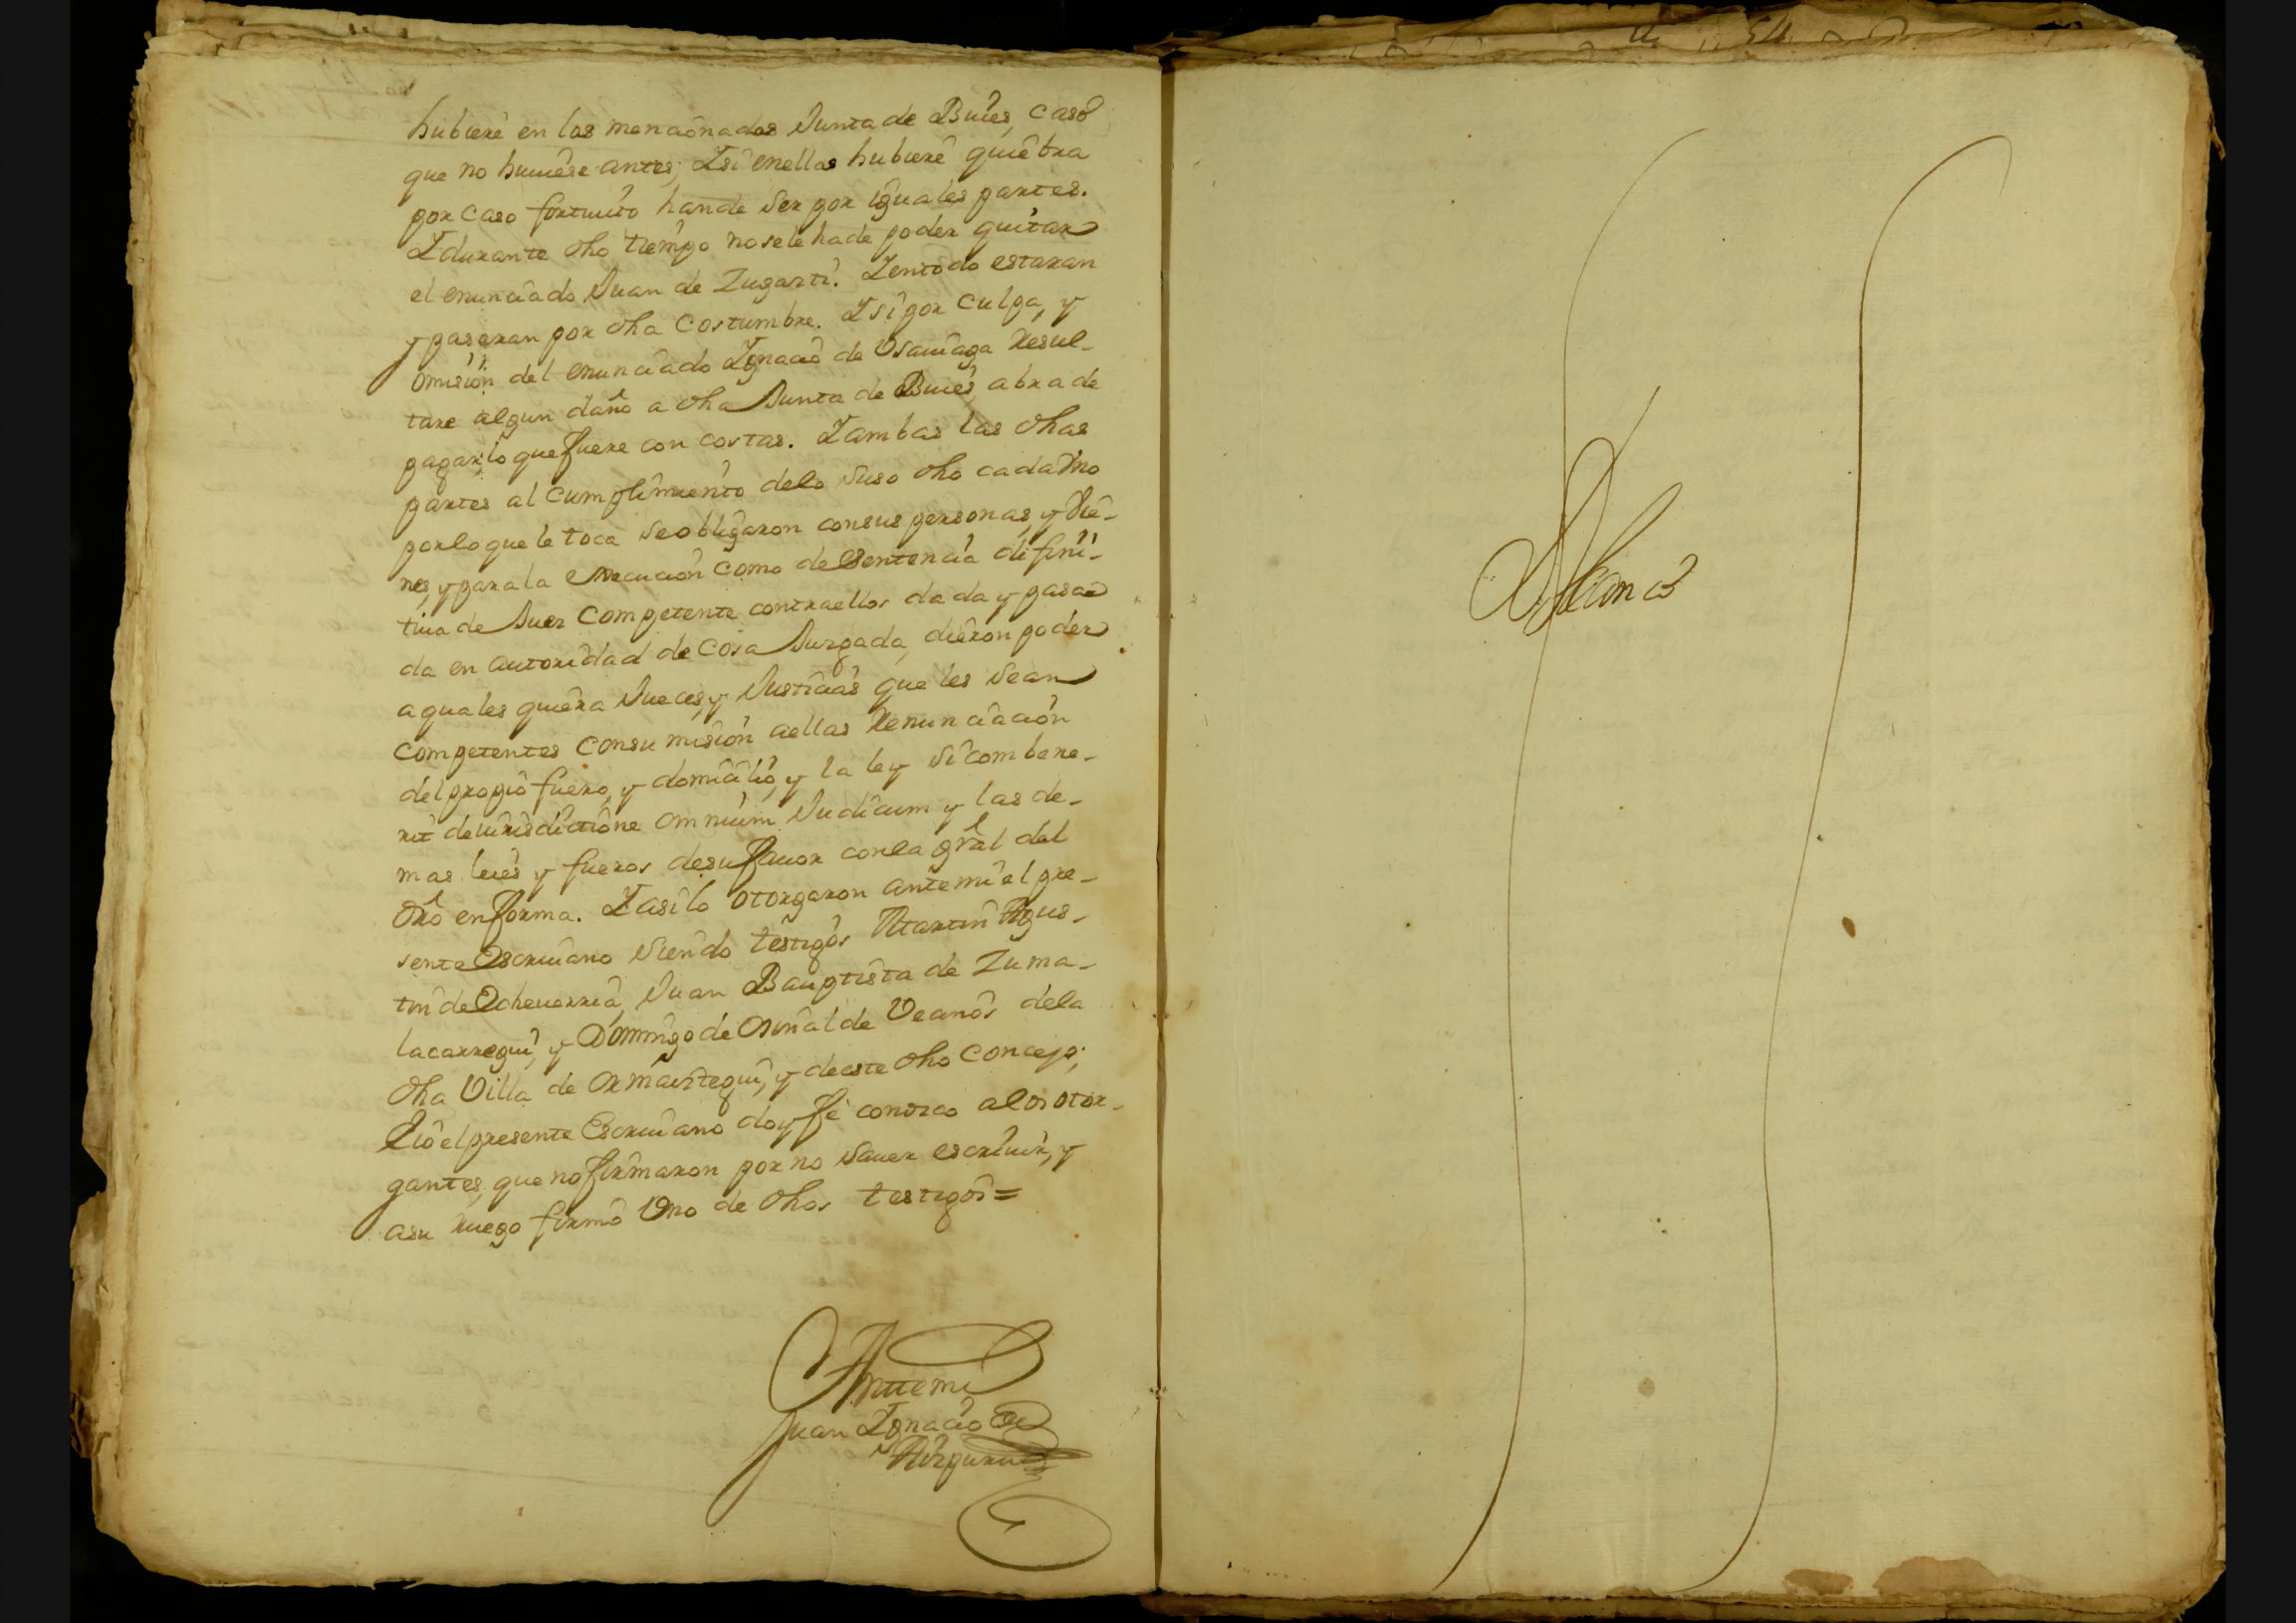 hubiere en los mencionados Junta de Buies, caso
que no huuiese antes; Y si en ellos hubiere quiebra
por caso fortuito han de ser por iguales partes.
Y durante dho tiempo no se le ha de poder quitar
el enunciado Juan de Zugasti. Y en todo estaran
y pasaran por dha costumbre. Y si por culpa, y
omision del enunciado Ygnacio de Vsauiaga Resul-
tare algun daño a dha Junta de Buies, abra de
pagar lo que fuere con costas. Y ambas las dhas
partes al cumplimiento de lo suso dho cada Vno
por lo que le toca se obligaron con sus personas, y Vie-
nes, y para la execucion como de Sentencia difini-
tiua de Juez competente contra ellos dada y pasa
da en autoridad de Cosa Juzgada, dieron poder
a quales quiera Jueces, y Justicias que les sean
competentes con sumision a ellas Renunciacion
del propio fuero, y domicilio, y la ley si combene-
rit de iurisdictione omnium Judicum y las de-
mas leies y fueros de su fauor con la gral del
dro en forma. Y asi lo otorgaron ante mi el pre-
sente Escriuano siendo testigos Martin Agus-
tin de Echeuerria, Juan Bauptista de Zuma-
lacarregui, y Domingo de Osinalde Vecinos de la
dha Villa de Ormaiztegui, y de este dho Concejo;
E io el presente Escriuano doy fe conozco a los otor-
gantes, que no firmaron por no sauer escriuir, y
a su ruego firmó Vno de dhos testigos =
Ante mi
Juan Ygnacio de
Aizpuru
Blanco